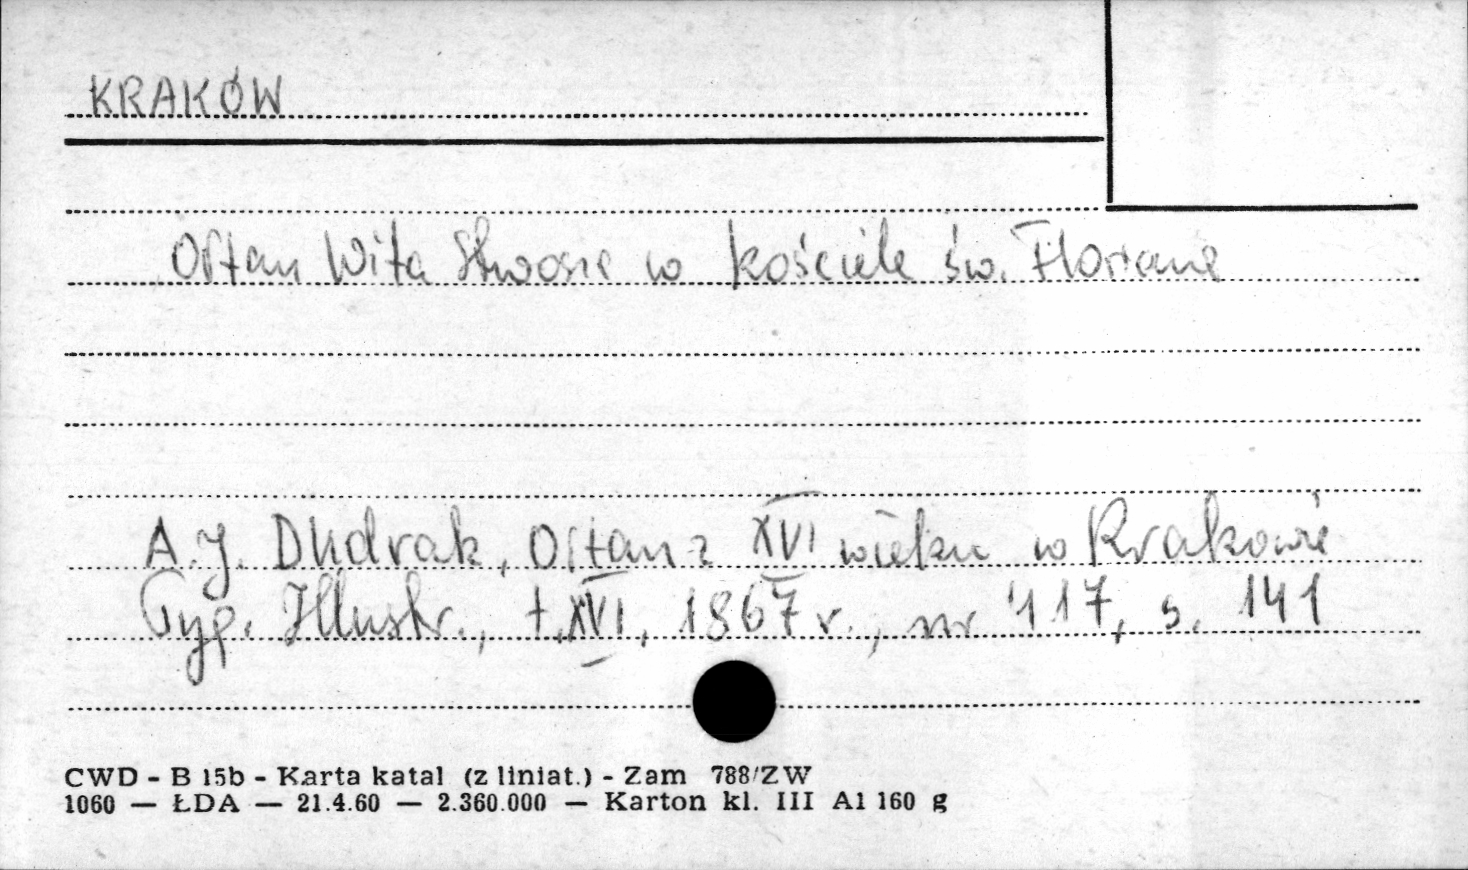 KRAKÓW
Ołtarz Wita Stwosza w kościele św. Floriana
A.J. Dudrak, Ołtarz z XVI wieku w Krakowie
Tyg. Illustr., t. XVI, 1867 r., nr 417, s. 141
CWD - B 15b - Karta katal (z liniat.) - Zam 788/ZW
1060 — ŁDA — 21.4.60 — 2.360.000 — Karton kl. III A1 160 g